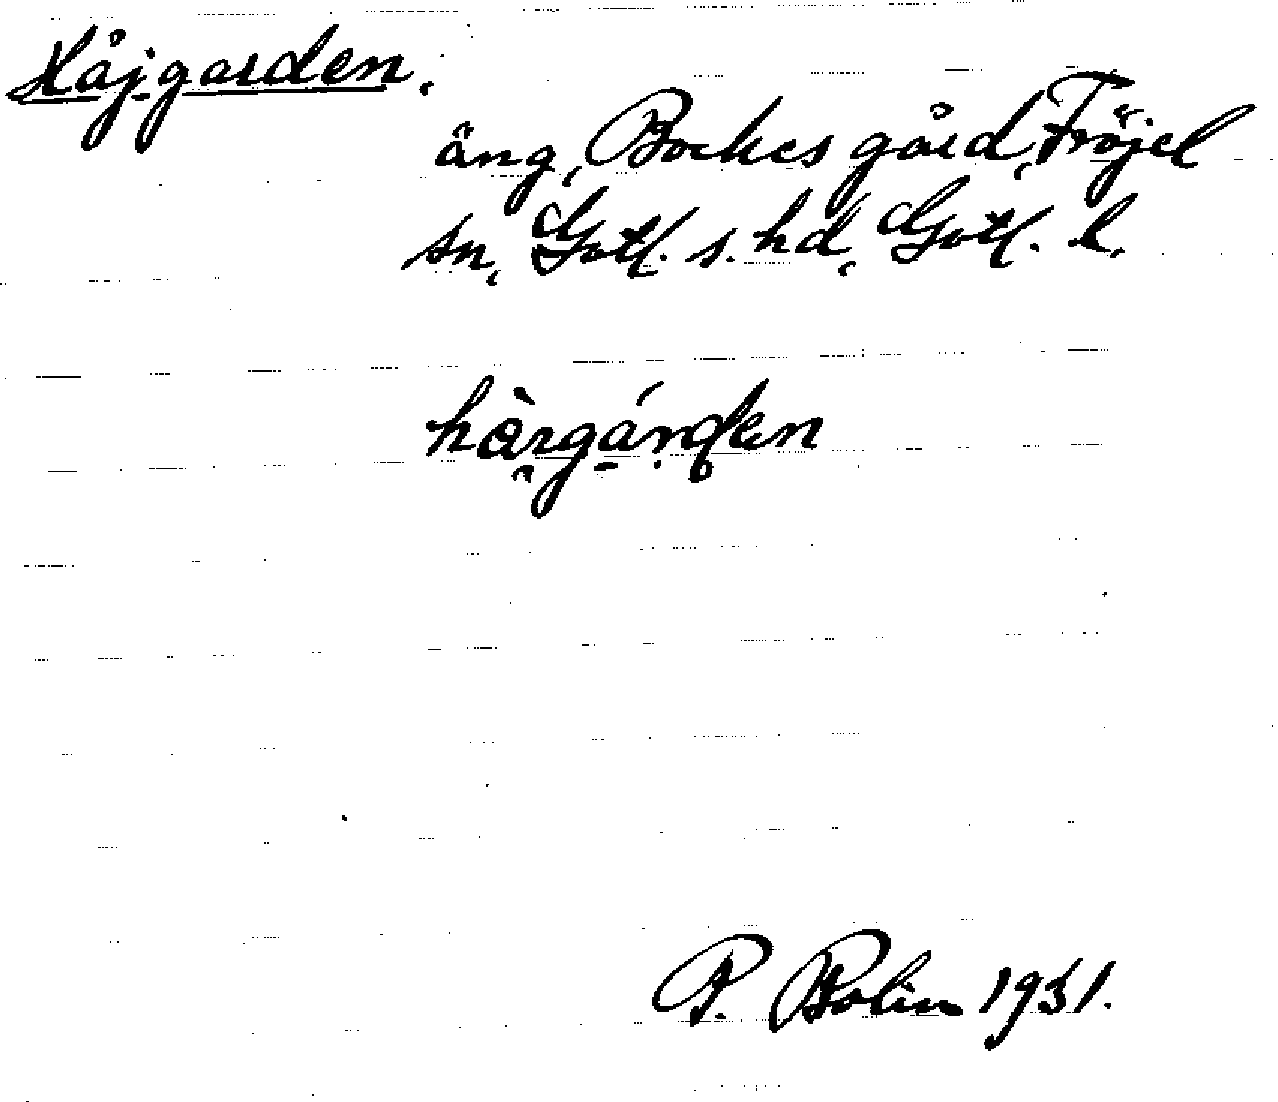 Håjgarden.
äng, Bockes gård, Fröjel
sn, Gotl. s. hd, Gotl. l.
P. Bolin 1931.